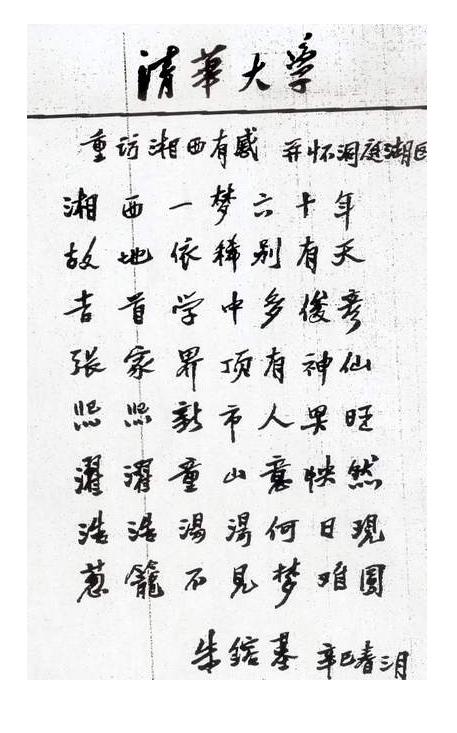 清華大学
重访湘西有感 并怀洞庭湖区
湘西一梦六十年
故地依稀别有天
吉首学中多俊彦
张家界顶有神仙
熙熙新市人兴旺
濯濯童山意怏然
浩浩湯湯何日現
葱籠不見梦难圆
朱镕基 辛巳春三月